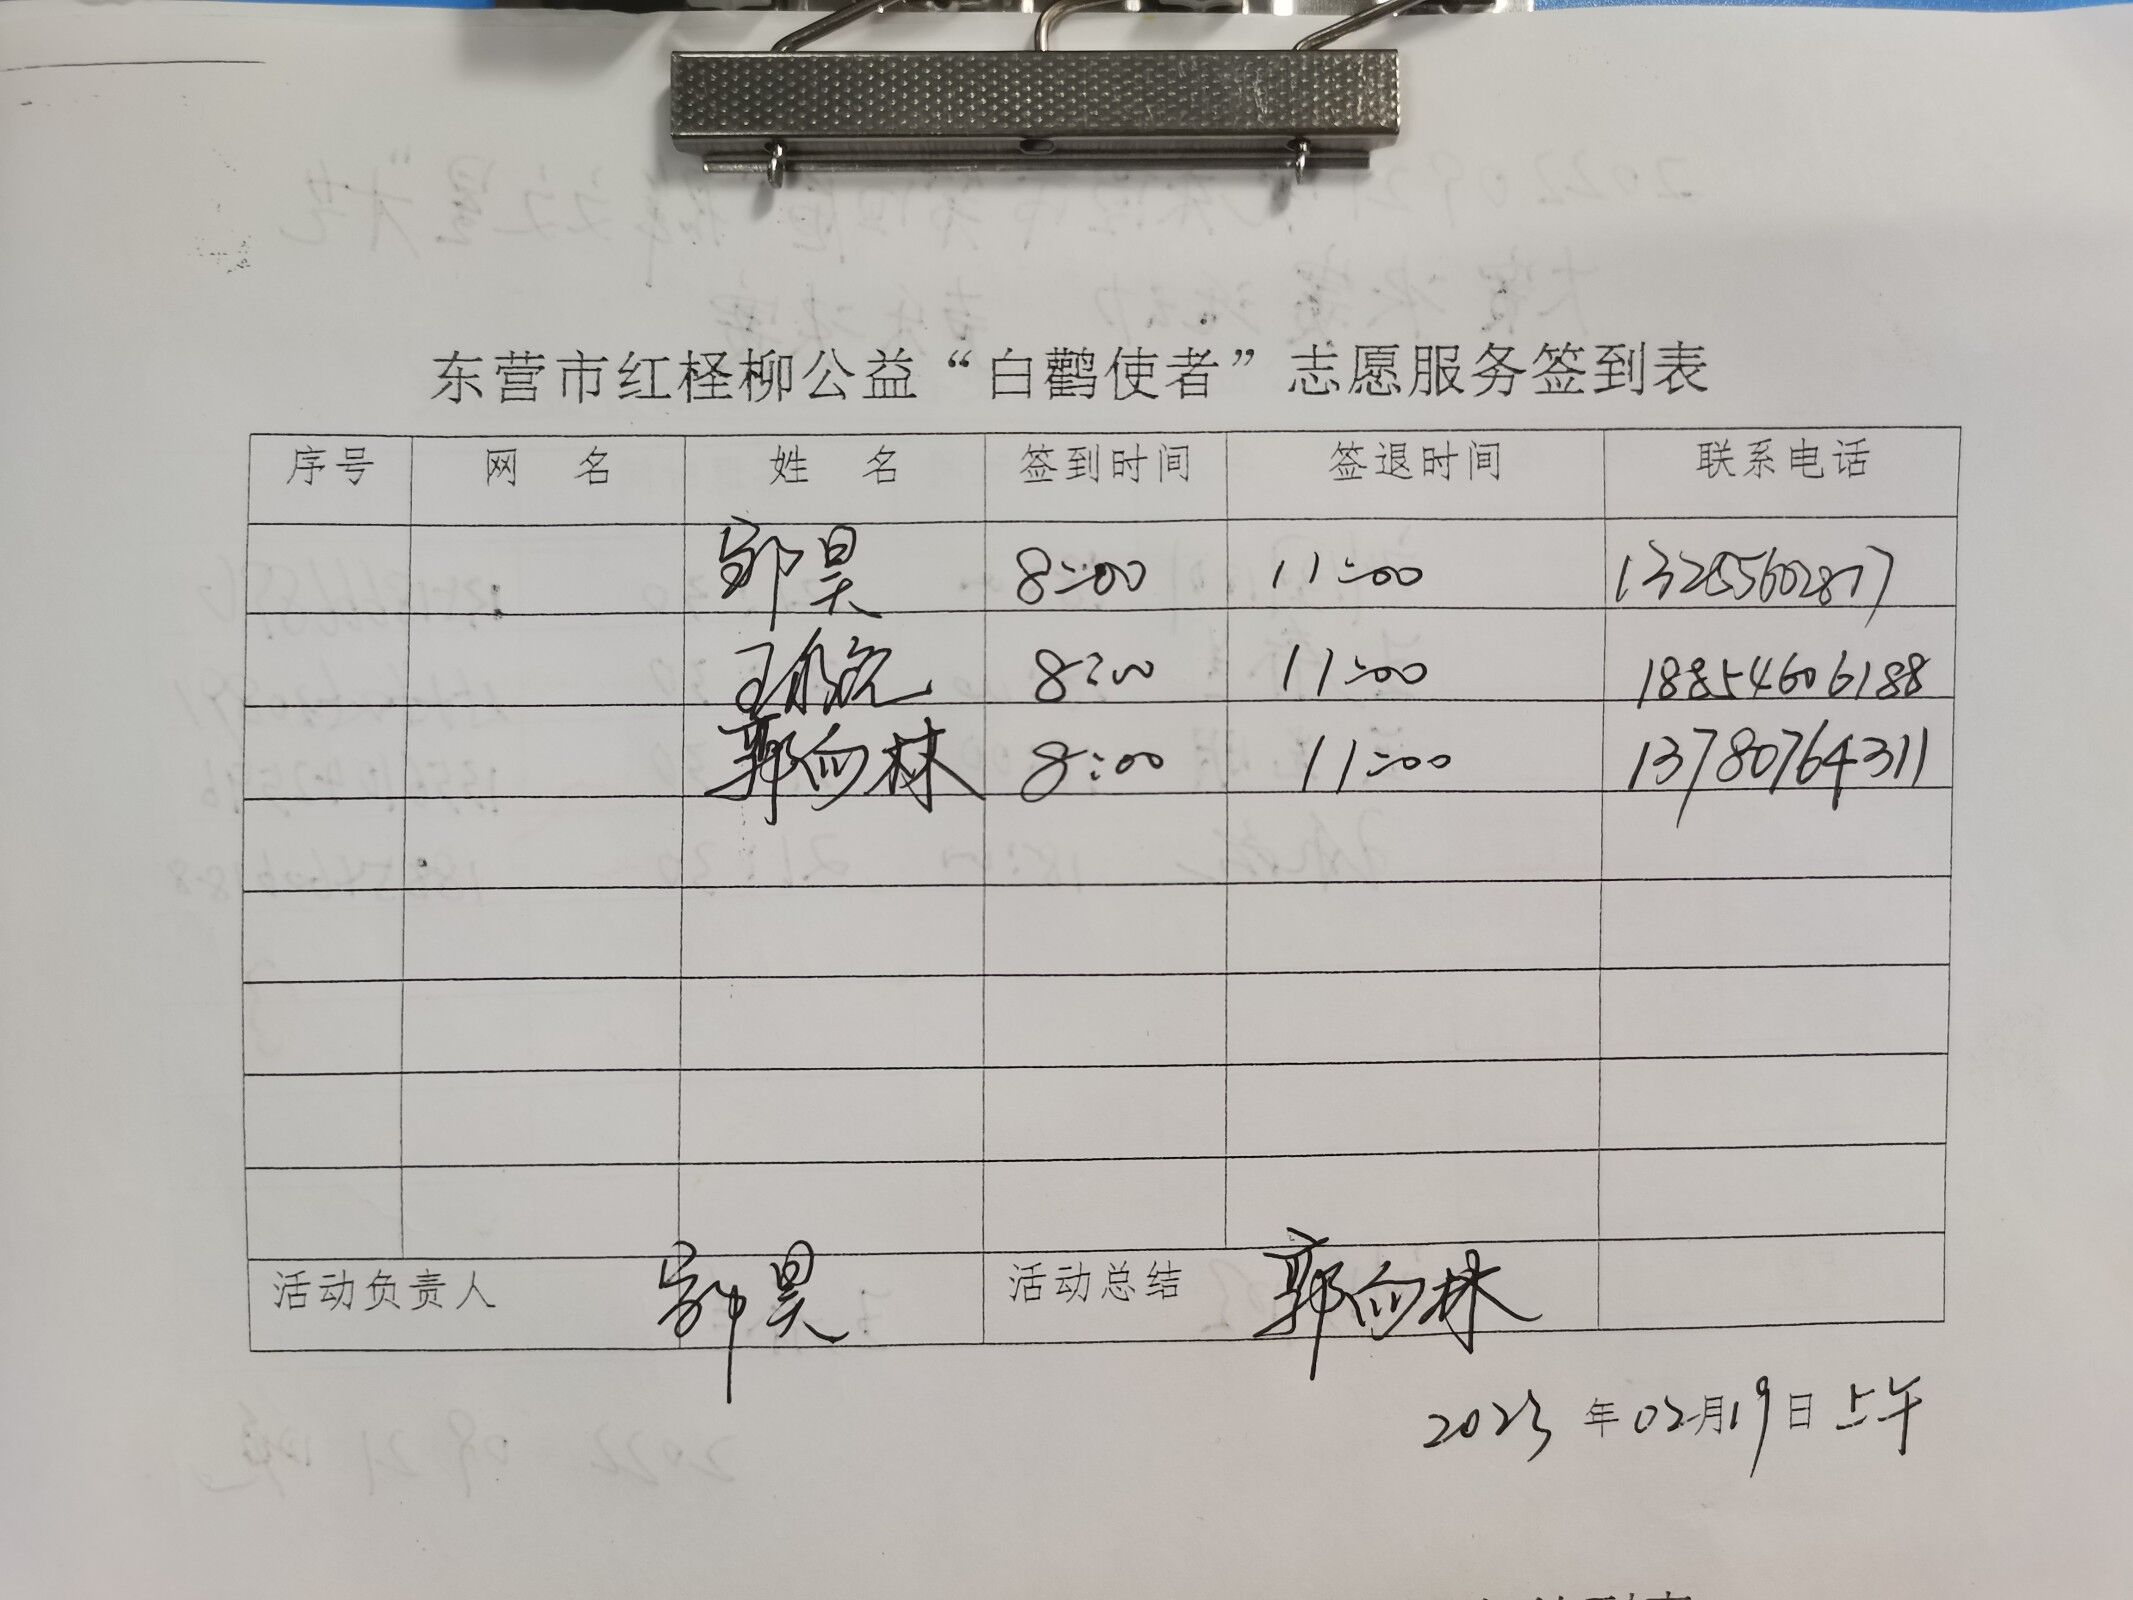 东营市红柽柳公益“白鹳使者”志愿服务签到表
序号 网 名 姓 名 签到时间 签退时间 联系电话
昊 8:00 11:00 13255602877
王 8:00 11:00 18854606188
郭向林 8:00 11:00 13780764311
活动负责人 昊 活动总结 郭向林
2023 年 02 月 19 日 上午